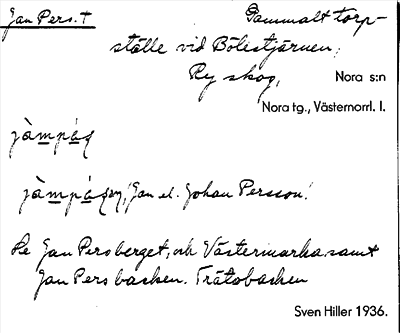 Jan Pers. † Gammalt torp-
ställe vid Bölestjärnen,
Ry skog, Nora s:n
Nora tg., Västernorrl. l.
jàmpáʂ
jàmpáʂɐn, 'Jan el. Johan Persson'.
Se Jan Persberget, och Västermarka samt
Jan Persbacken. Trätobacken
Sven Hiller 1936.